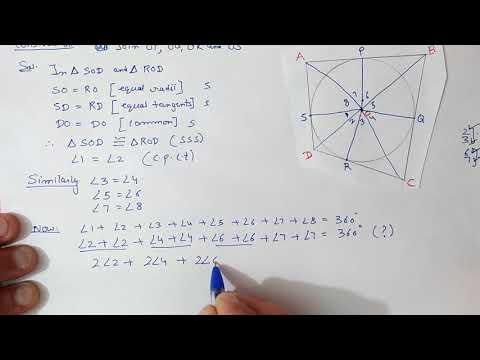 Join OP, OQ, OR and OS
Sol. In △ SOD and △ ROD
SO = RO [equal radii] S
SD = RD [equal tangents] S
DO = DO [common] S
∴ △ SOD ≅ △ROD (SSS)
∠1 = ∠2 (C.P.C.T)
Similarly ∠3 = ∠4
∠5 = ∠6
∠7 = ∠8
Now: ∠1 + ∠2 + ∠3 + ∠4 + ∠5 + ∠6 + ∠7 + ∠8 = 360°
∠2 + ∠2 + ∠4 + ∠4 + ∠6 + ∠6 + ∠7 + ∠7 = 360° (?)
2∠2 + 2∠4 + 2∠6
A
P
B
7 6
8 5
S
Q
1 2 3 4
D
R
C